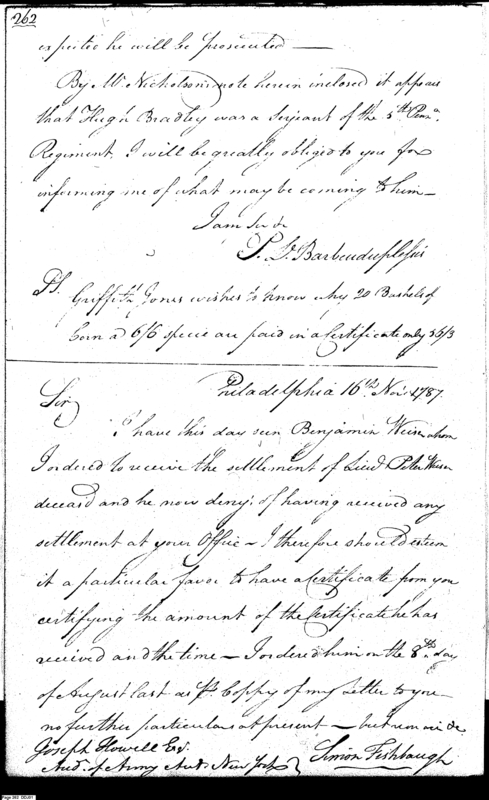 262
expected he will be prosecuted —
By Mr. Nicholsons note herein inclosed it appears
that Hugh Bradley was a Serjeant of the 5th Penna.
Regiment, I will be greatly obliged to you for
informing me of what may be coming to him —
I am Sir &c
P. L. Barbeuduplessis
PS. Griffith Jones wishes to know why 20 Bushels of
Corn a 6/6 specie are paid in a Certificate only 56/3
Philadelphia 16th. Nov. 1787.
Sir,
I have this day seen Benjamin Weiser whom
I ordered to receive the settlement of Lieut. Peter Weiser
deceasd and he now deny's of having received any
settlement at your Office — I therefore should esteem
it a particular favor to have a Certificate from you
certifying the amount of the Certificate he has
received and the time — I ordered him on the 8th. day
of August last as Pr. Coppy of my Letter to you
no further particulars at present — but remain &c
Joseph Howell Esq.
Simon Fishbaugh
Aud. of Army Acts. New York
Page 262 DDJ01